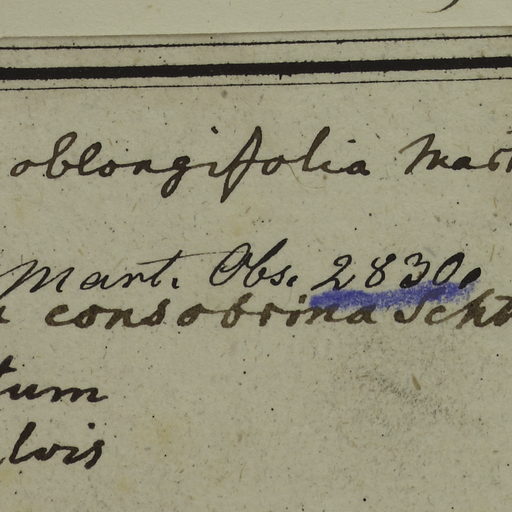 oblongifolia Mart
Mart. Obs. 2830.
consobrina Scht
tum
lvis